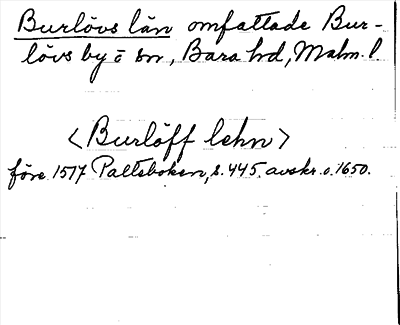 Burlövs län omfattade Bur-
lövs by o sn, Bara hd, Malm. l.
<Burlöff lehn>
före 1517 Palteboken, s. 445. avskr. o. 1650.